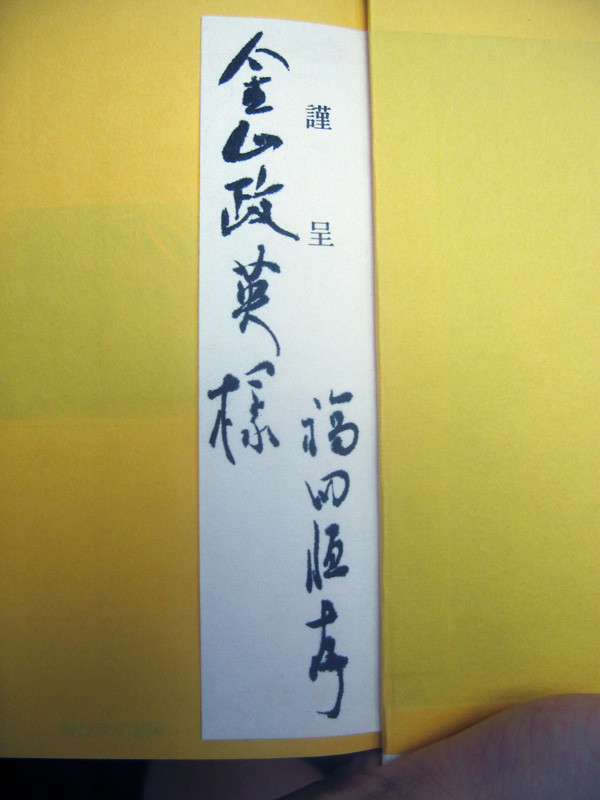 謹呈
福田恆存
金山政英様